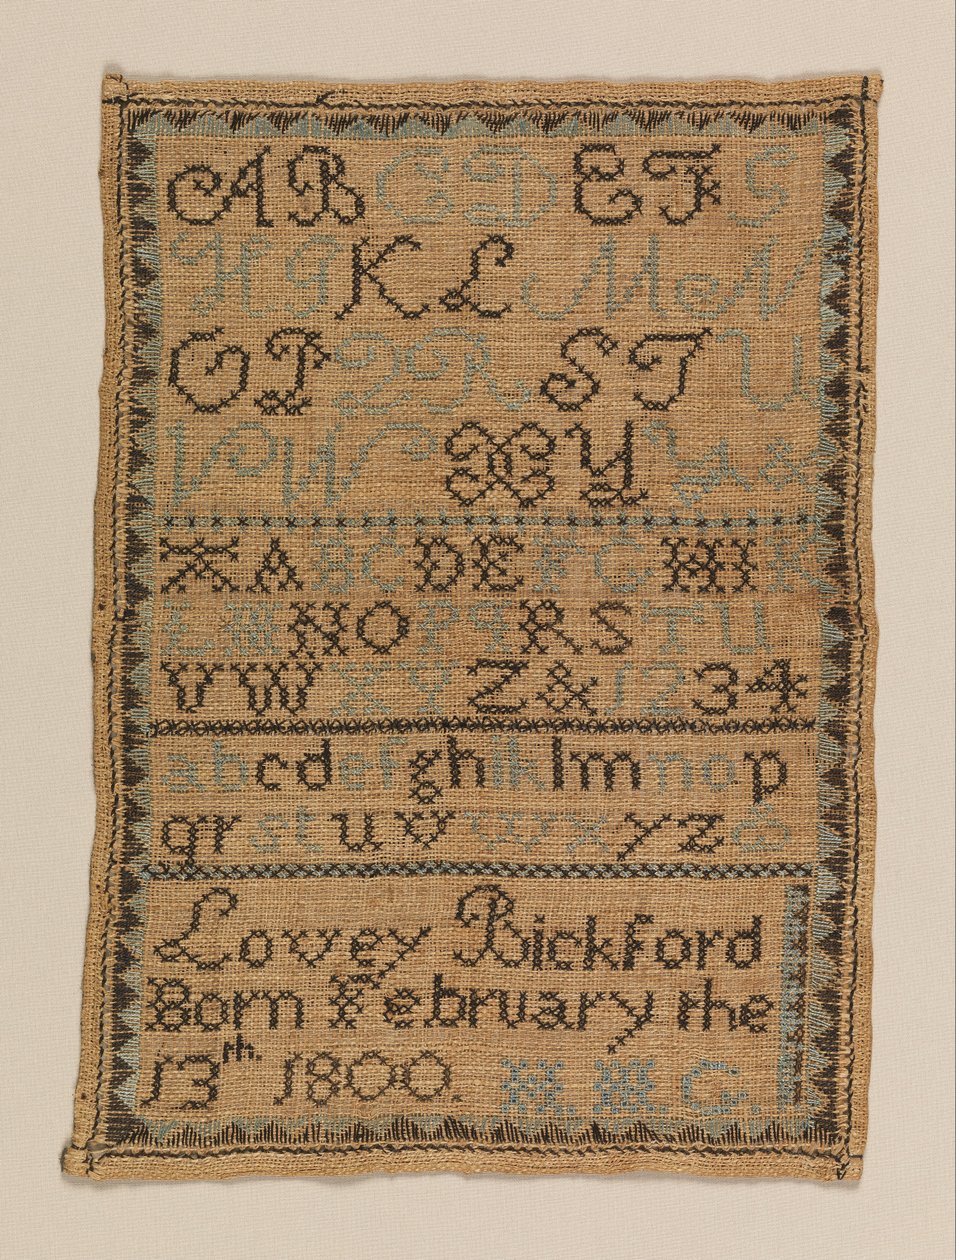 A B C D E F G
H I K L M N
O P Q R S T U
V W X Y Z &
A B C D E F G H I K
L M N O P Q R S T U
V W X Y Z & 1 2 3 4
a b c d e f g h i k l m n o p
q r s t u v w x y z &
Lovey Bickford
Born February the
13th. 1800. M. M. G.